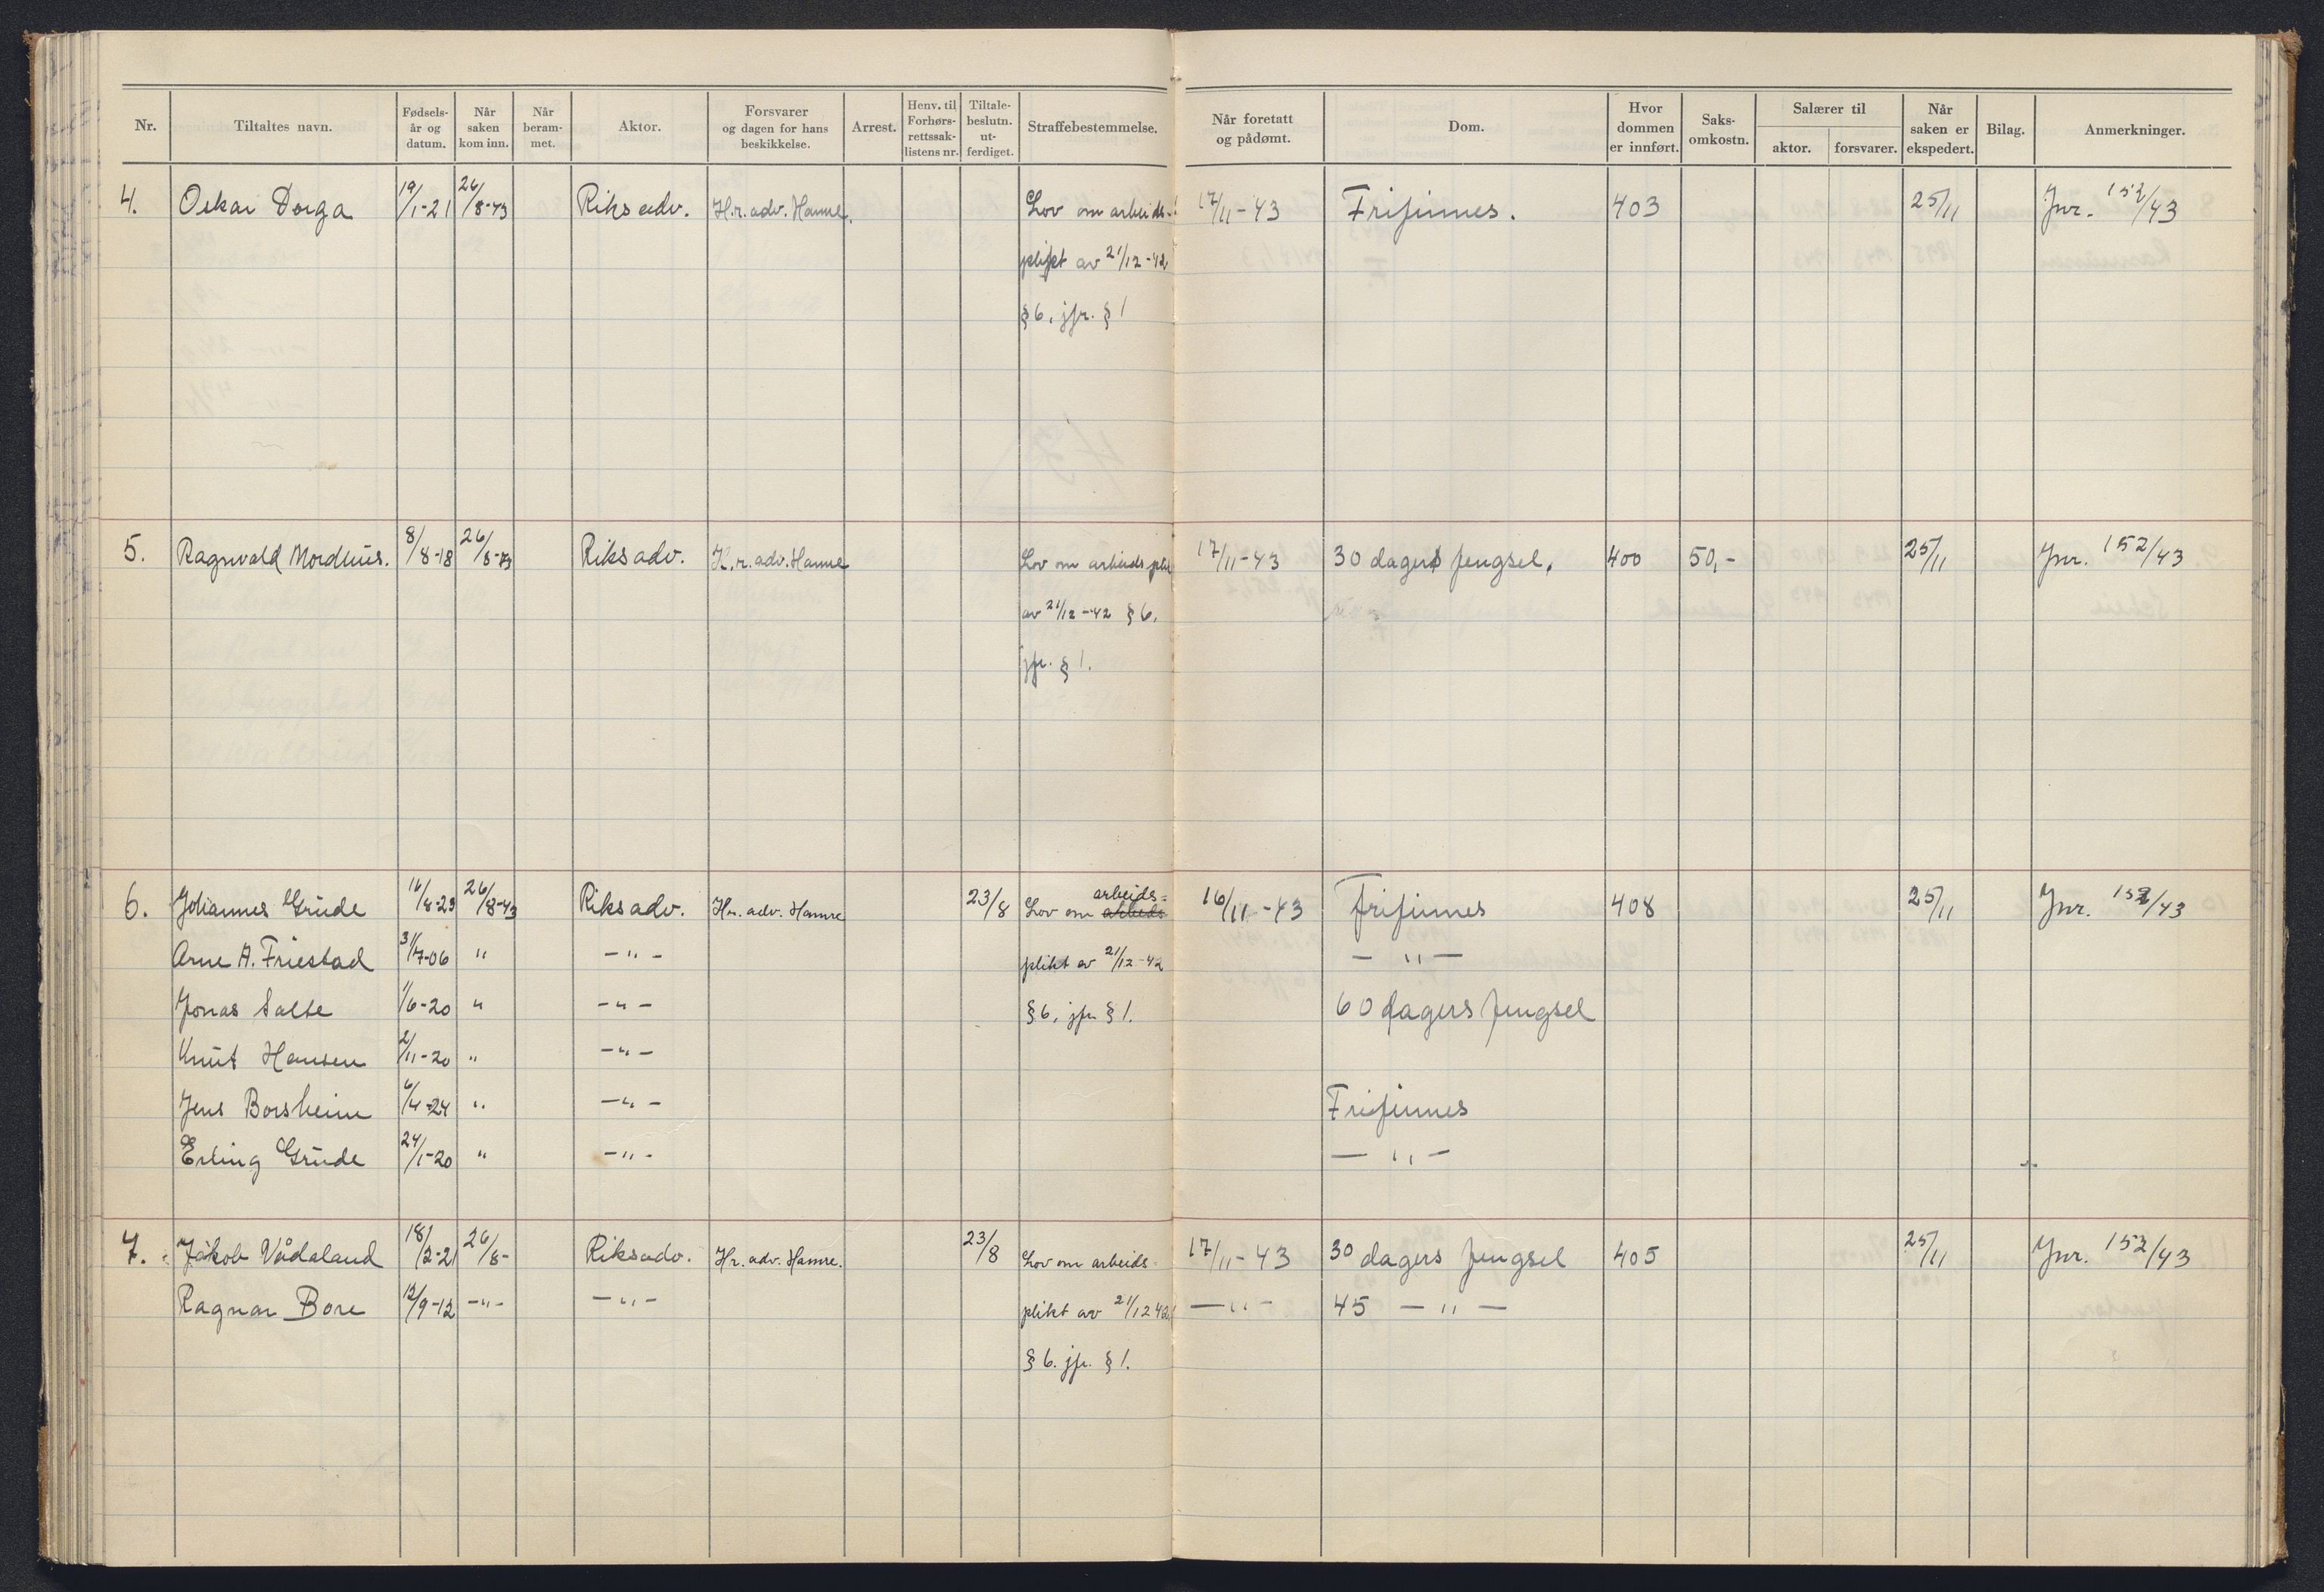 Nr. Tiltaltes navn. Fødselsår og datum. Når saken kom inn. Når berammet. Aktor. Forsvarer og dagen for hans beskikkelse. Arrest. Henv. til Forhørsrettssaklistens nr. Tiltalebeslutn. utferdiget. Straffebestemmelse. Når foretatt og pådømt. Dom. Hvor dommen er innført. Saksomkostn. Salærer til aktor. forsvarer. Når saken er ekspedert. Bilag. Anmerkninger.
4. Oskar Dorga 19/1-21 26/8-43 Riksadv. H.r.adv. Hamre. Lov om arbeids- 17/11-43 Frifinnes. 403 25/11 Jnr. 152/43
plikt av 21/12-42
§ 6, jfr. § 1
5. Ragnvald Mordhus. 8/8-18 26/8-43 Riksadv. H.r.adv. Hamre Lov om arbeidsplikt 17/11-43 30 dagers fengsel. 400 50,- 25/11 Jnr. 152/43
av 21/12-42 § 6,
jfr. § 1.
6. Johannes Grude 16/8-23 26/8-43 Riksadv. Hr. adv. Hamre 23/8 Lov om arbeids- 16/11-43 Frifinnes 408 25/11 Jnr. 152/43
Arne A. Friestad 31/7-06 " -"- plikt av 21/12-42 -"-
Jonas Salte 1/6-20 " -"- § 6, jfr. § 1. 60 dagers fengsel
Knut Hansen 2/11-20 " -"-
Jens Borsheim 6/4-24 " -"- Frifinnes
Erling Grude 24/1-20 " -"- -"-
7. Jakob Vådaland 18/2-21 26/8- Riksadv. Hr. adv. Hamre. 23/8 Lov om arbeids- 17/11-43 30 dagers fengsel 405 25/11 Jnr. 152/43
Ragnar Bore 12/9-12 -"- -"- plikt av 21/12 42 -"- 45 -"-
§ 6. jfr. § 1.